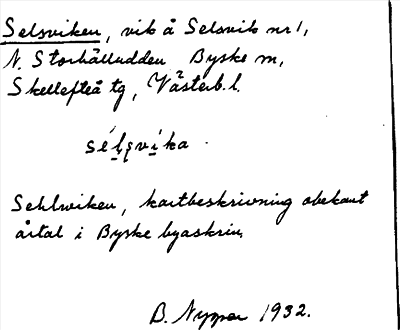 Selsviken, vik å Selsvik nr 1,
N. Storhälludden Byske sn,
Skellefteå tg, Västerb. l.
sélsvíka.
Sehlwiken, kartbeskrivning obekant
årtal i Byske byaskrin.
B. Nyman 1932.